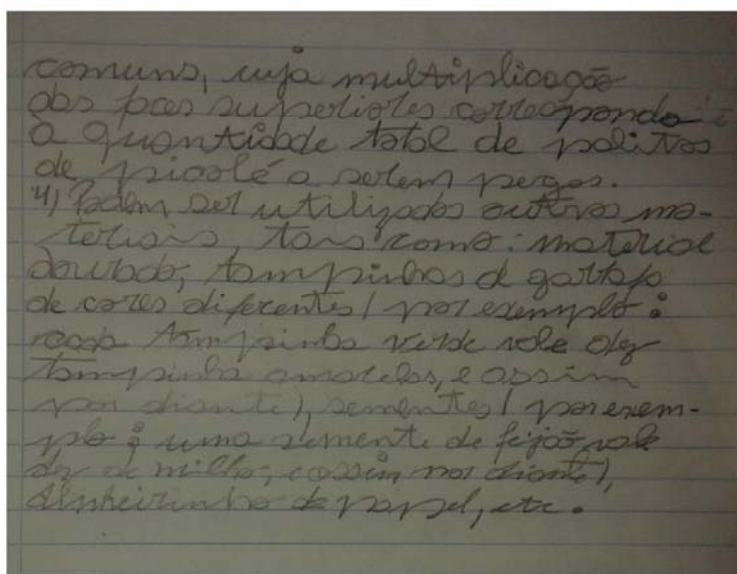 comuns, cuja multiplicação
das faces superiores corresponda
à quantidade total de palitos
de picolé a serem pegos.
4) Podem ser utilizados outros ma-
teriais, tais como: material
dourado, tampinhas de garrafa
de cores diferentes (por exemplo:
cada tampinha verde vale dez
tampinha amarelas, e assim
por diante), sementes (por exem-
plo: uma semente de feijão vale
dez de milho, e assim por diante),
dinheirinho de papel, etc.